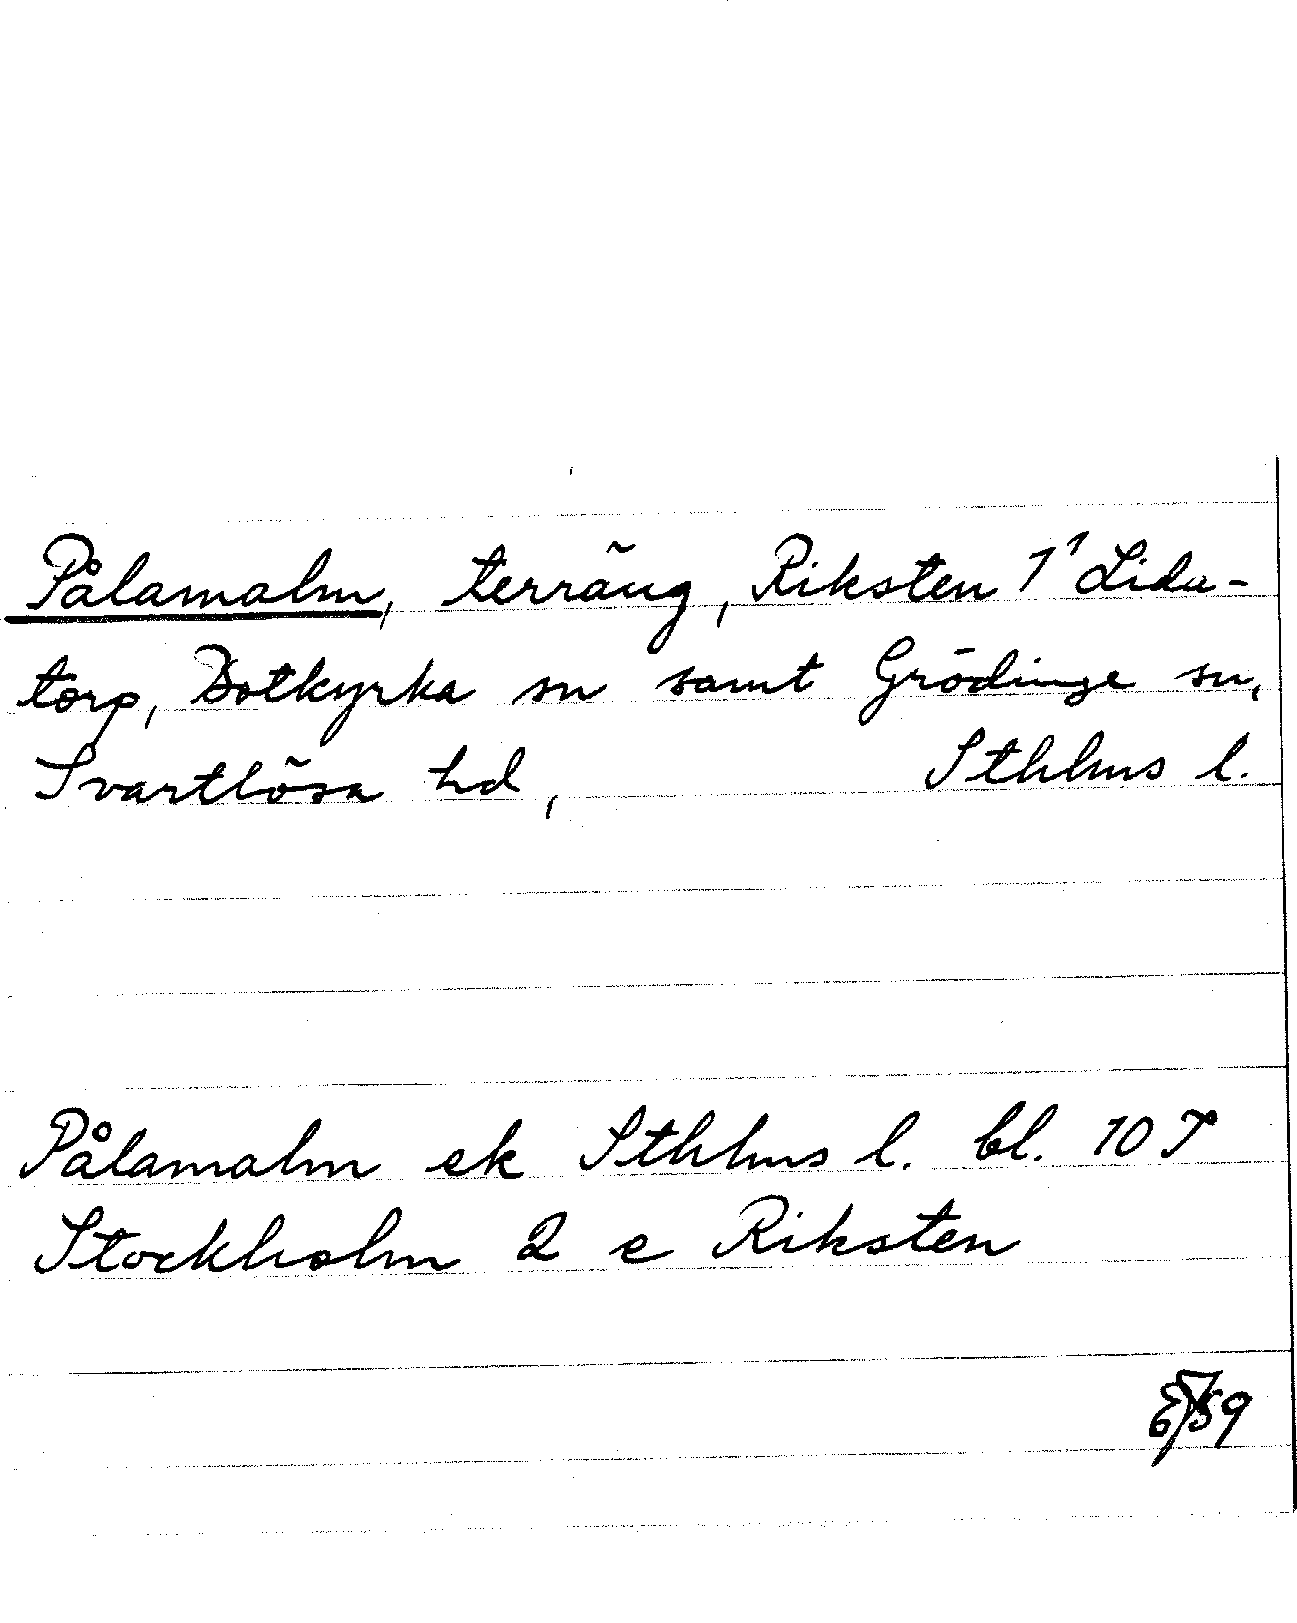 Pålamalm, terräng, Riksten 1¹ Lida-
torp, Botkyrka sn samt Grödinge sn,
Svartlösa hd, Sthlms l.
Pålamalm ek Sthlms l. bl. 10 I
Stockholm 2 c Riksten
59